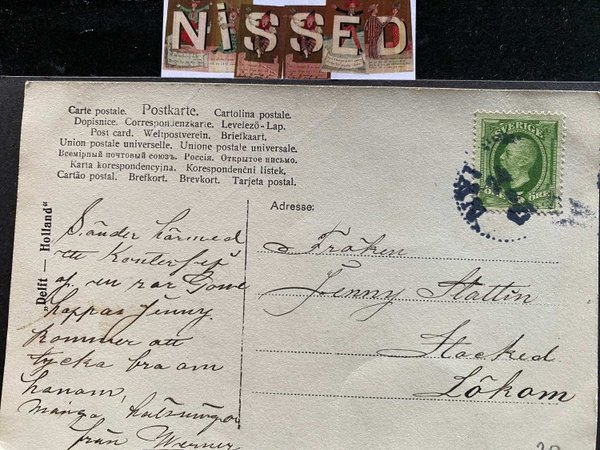 NISSED
Carte postale. Postkarte. Cartolina postale.
Dopisnice. Correspondenzkarte. Levelező-Lap.
Post card. Weltpostverein. Briefkaart.
Union postale universelle. Unione postale universale.
Всемірный почтовый союзъ. Россія. Открытое письмо.
Karta korespondencyjna. Korespondenční lístek.
Cartão postal. Brefkort. Brevkort. Tarjeta postal.
SVERIGE
5 ÖRE
Adresse:
„Delft — Holland"
Sänder härmed
ett Konterfej
af en rar
hoppas Jenny
kommer att
tycka bra om
honom,
många hälsningar
från Werner
Fröken
Jenny Hattin
Stocked
Lökom